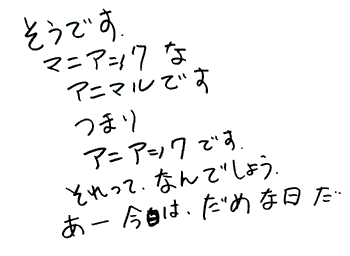 そうです.
マニアック な
アニマルです
つまり
アニアック です.
それって、なんでしょう.
あー 今日は、だめな日だ